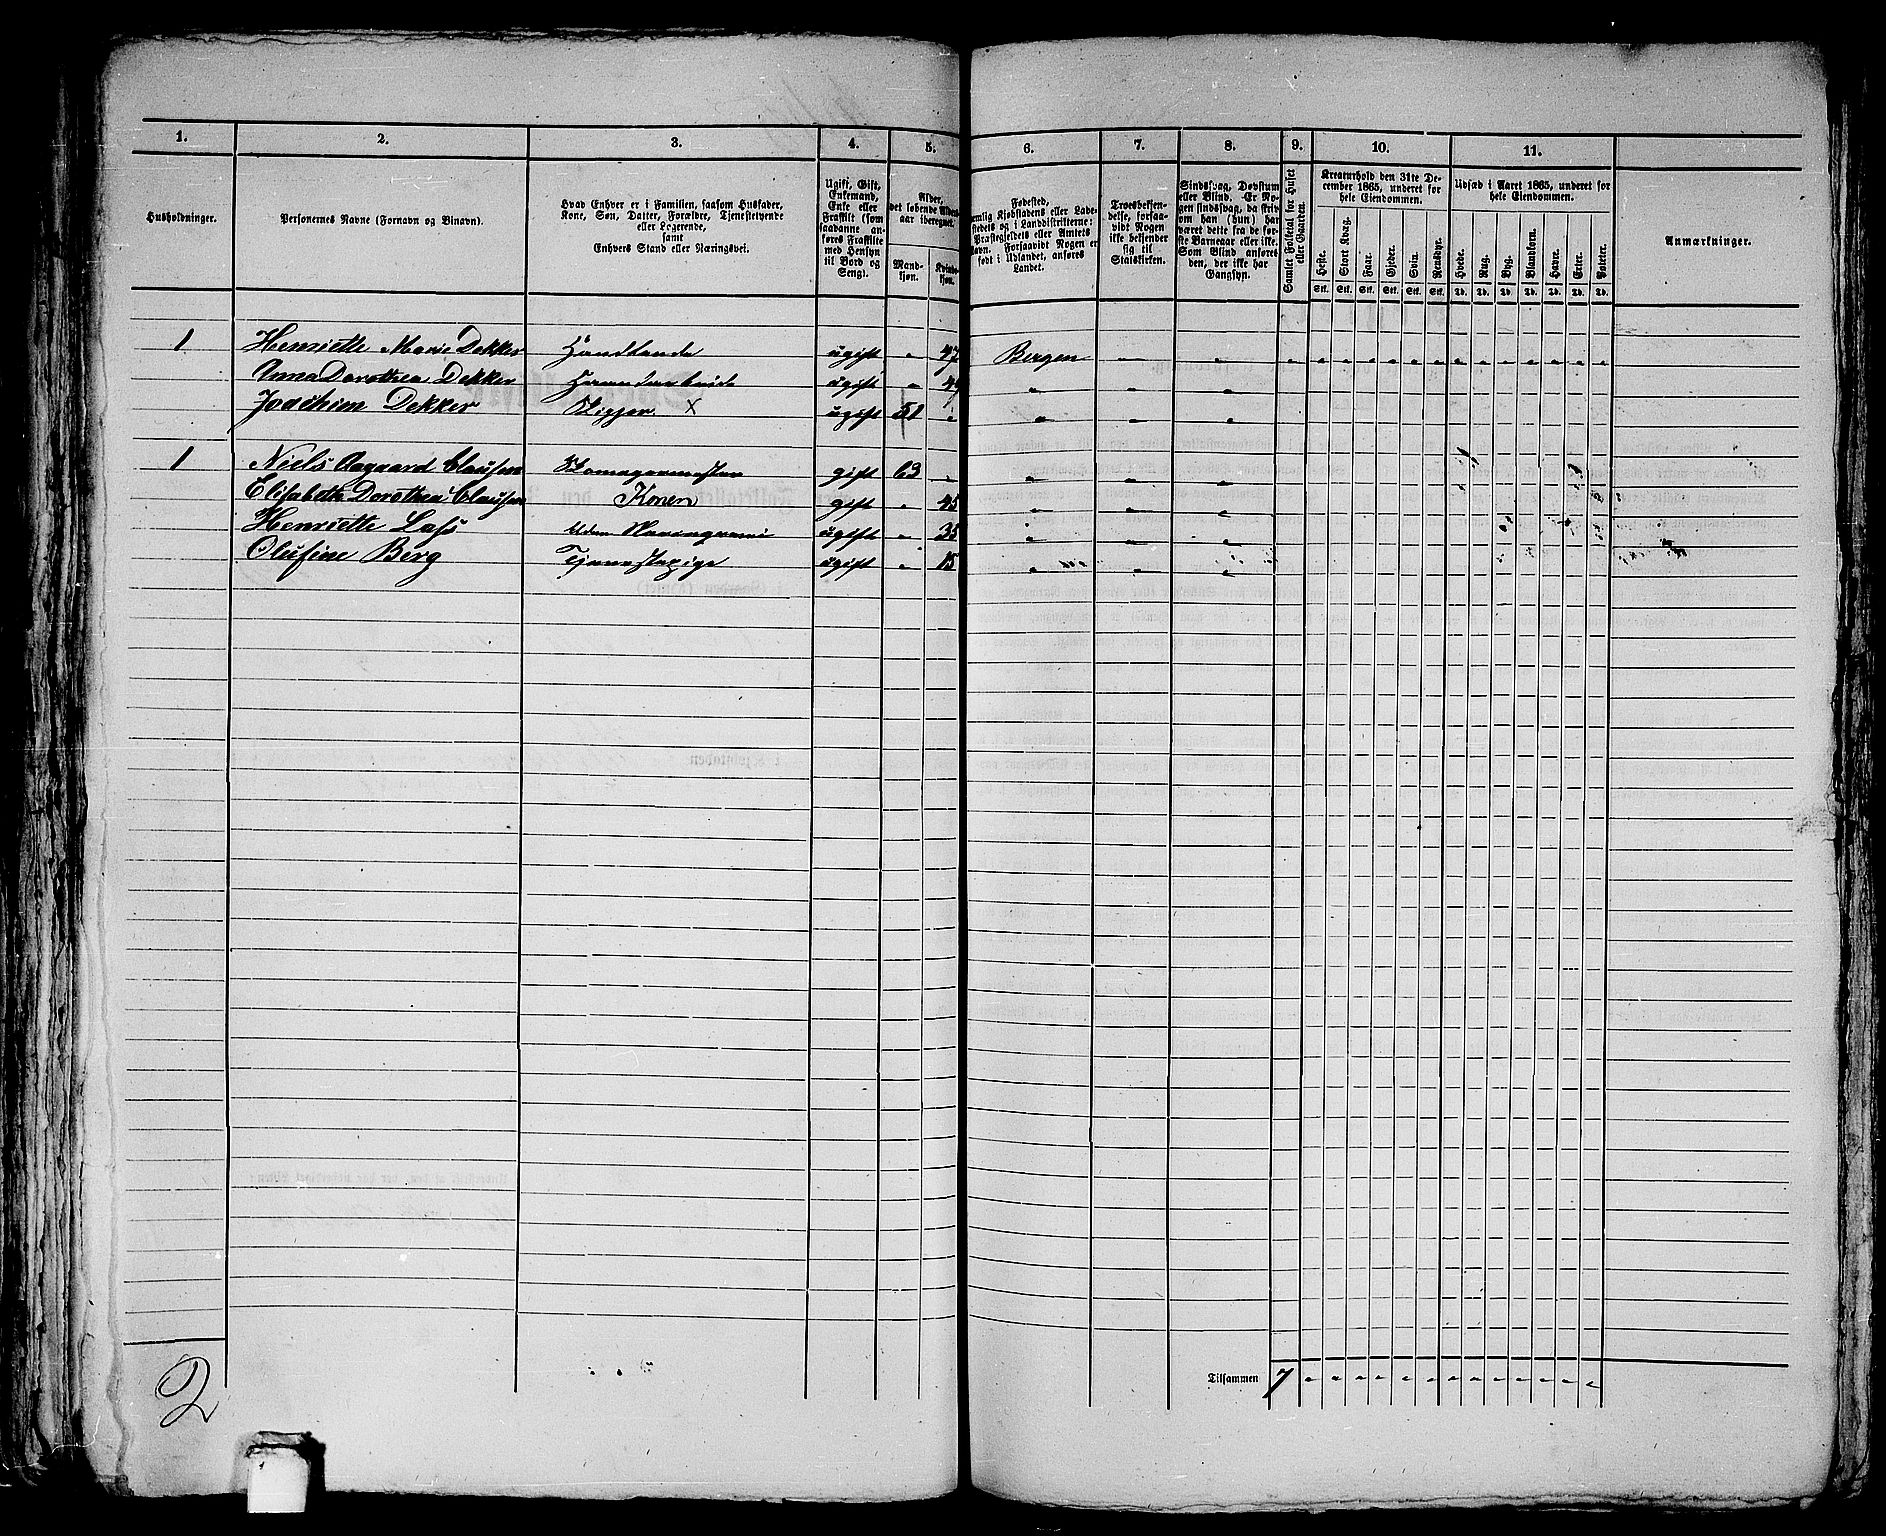 1. 2. 3. 4. 5. 6. 7. 8. 9. 10. 11.
Husholdninger.
Personernes Navne (Fornavn og Binavn).
Hvad Enhver er i Familien, saasom Husfader,
Kone, Søn, Datter, Forældre, Tjenestetyende
eller Logerende,
samt
Enhvers Stand eller Næringsvei.
Ugift, Gift,
Enkemand,
Enke eller
Fraskilt (som
saadanne an-
føres Fraskilte
med Hensyn
til Bord og
Seng).
Alder,
det løbende Alders-
aar iberegnet.
Mand-
kjøn.
Kvinde-
kjøn.
Fødested,
nemlig Kjøbstadens eller Lade-
stedets og i Landdistrikterne:
Præstegjeldets eller Amtets
Navn. Forsaavidt Nogen er
født i Udlandet, anføres
Landet.
Troesbekjen-
delse, forsaa-
vidt Nogen
ikke bekjender
sig til
Statskirken.
Sindssvag, Døvstum
eller Blind. Er No-
gen sindssvag, da skriv
om han (hun) har
været dette fra de før-
ste Barneaar eller ikke.
Som Blind anføres
den, der ikke har
Gangsyn.
Samlet Folketal for Huset
eller Gaarden.
Kreaturhold den 31te De-
cember 1865, underet for
hele Eiendommen.
Heste. Stort Kvæg. Faar. Gjeder. Svin. Rensdyr.
Stk. Stk. Stk. Stk. Stk. Stk.
Udsæd i Aaret 1865, underet for
hele Eiendommen.
Hvede. Rug. Byg. Blandkorn. Havre. Erter. Poteter.
Td. Td. Td. Td. Td. Td. Td.
Anmærkninger.
1 Henriette Marie Dekker Handlende ugift " 47 Bergen — "
Anna Dorothea Dekker Haandarbeide ugift " " " "
Joachim Dekker Skipper X ugift 51 " " " "
1 Niels Aagaard Clausen Skomagermester gift 63 " " " "
Elisabeth Dorothea Clausen Konen gift " 45 " " "
Henriette Lass Uden Næringsvei ugift " 35 " " "
Olufine Berg Tjenestepige ugift " 15 " " "
Tilsammen 7 " " " " " " " " " " " " "
2